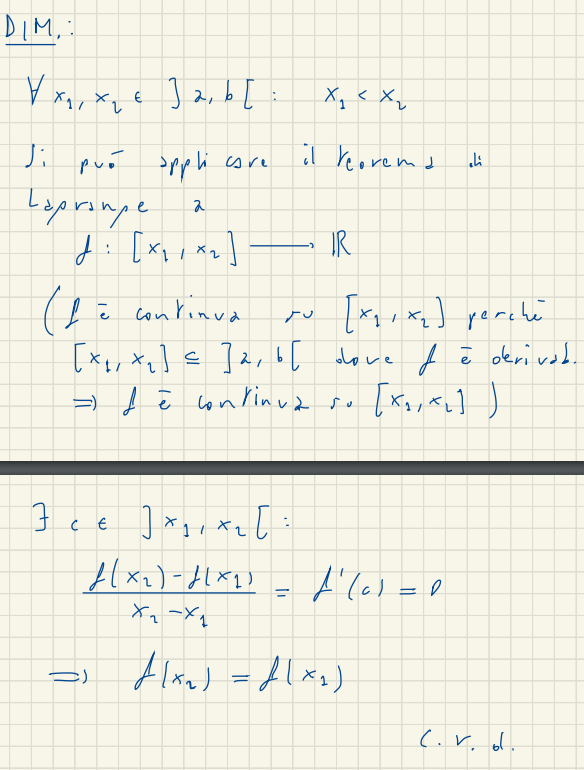 DIM.:
∀ x₁, x₂ ∈ ]a, b[ : x₁ < x₂
Si può applicare il teorema di
Lagrange a
f : [x₁, x₂] ⟶ ℝ
(f è continua su [x₁, x₂] perché
[x₁, x₂] ⊆ ]a, b[ dove f è derivab.
⇒ f è continua su [x₁, x₂])
∃ c ∈ ]x₁, x₂[ :
(f(x₂) - f(x₁)) / (x₂ - x₁) = f'(c) = 0
⇒ f(x₂) = f(x₁)
c.v.d.